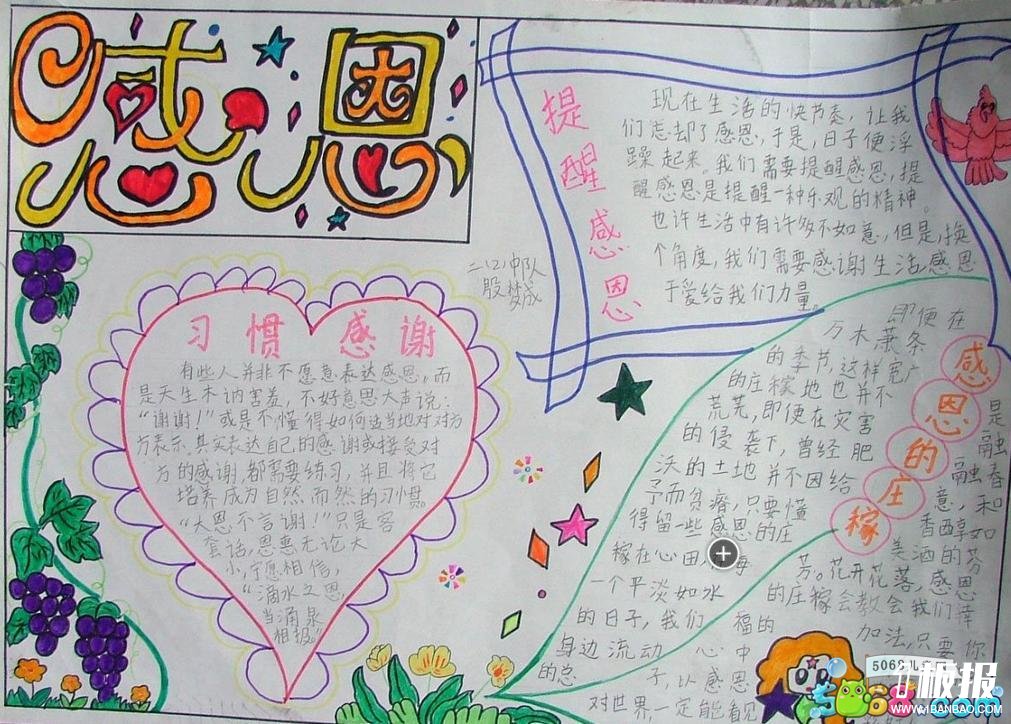 感恩
提醒感恩
现在生活的快节奏，让我
们忘却了感恩，于是，日子便浮
躁起来。我们需要提醒感恩，提
醒感恩是提醒一种乐观的精神。
也许生活中有许多不如意，但是，换
个角度，我们需要感谢生活，感恩
于爱给我们力量。
二(2)中队
殷梦成
习惯感谢
有些人并非不愿意表达感恩，而
是天生木讷害羞，不好意思大声说：
“谢谢！”或是不懂得如何适当地对对方
方表示。其实表达自己的感谢或接受对
方的感谢，都需要练习，并且将它
培养成为自然而然的习惯。
“大恩不言谢！”只是客
套话，恩惠无论大
小，宁愿相信，
“滴水之恩，
当涌泉
相报。”
感恩的庄稼
即便在
万木萧条
的季节，这样宽广
的庄稼地也并不
荒芜，即便在灾害
的侵袭下，曾经肥
沃的土地并不因给
予而贫瘠，只要懂
得留一些感恩的庄
稼在心田，每
一个平淡如水
的日子，我们
身边流动
的总
是
融融
春意，和
香醇如
美酒的芬
芳。花开花落，感恩
的庄稼会教会我们幸
福的
加法，只要你
心中
子，以感恩
对世界，一定能看见
5068儿
板报
WWW.1BANBAO.COM